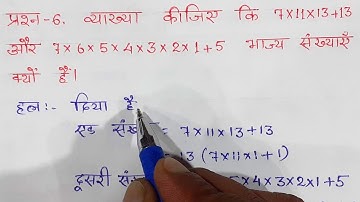 प्रश्न-6. व्याख्या कीजिए कि 7×11×13+13
और 7×6×5×4×3×2×1+5 भाज्य संख्याएँ
क्यों हैं।
हल:- दिया है
एक = 7×11×13+13
13 (7×11×1+1)
दूसरी ×5×4×3×2×1+5